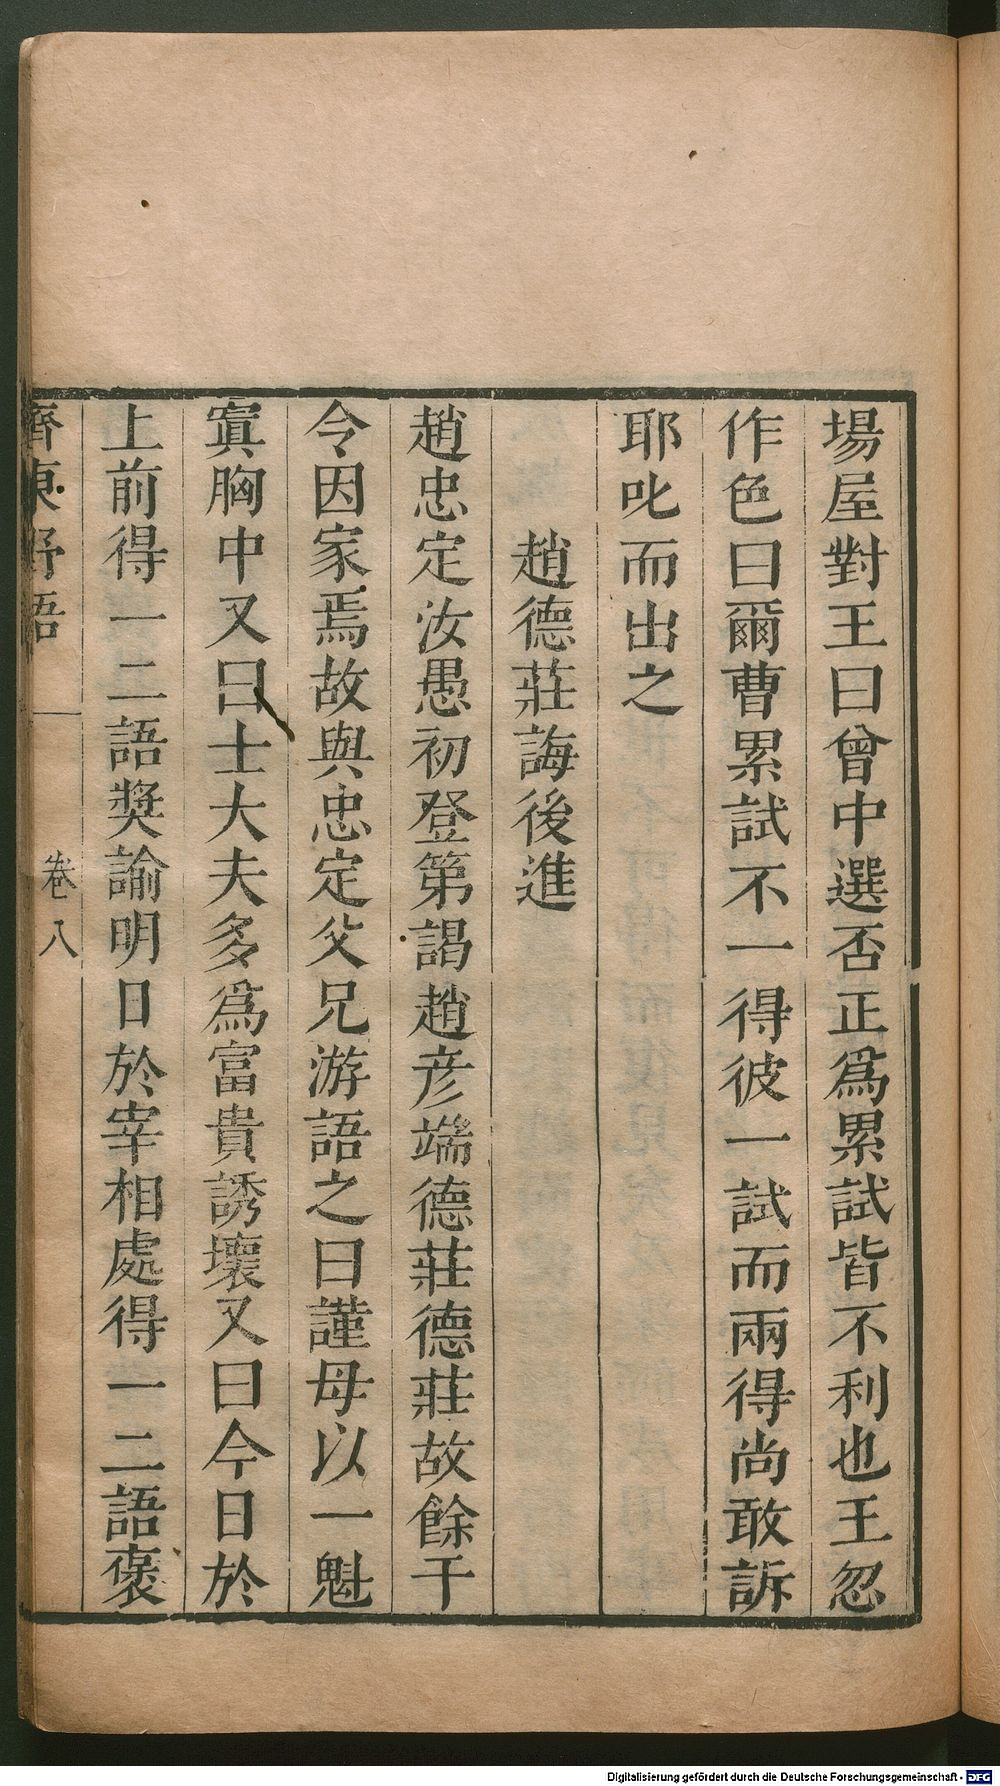 場屋對王曰曾中選否正爲累試皆不利也王忽
作色曰爾曹累試不一得彼一試而兩得尚敢訴
耶叱而出之
趙德莊誨後進
趙忠定汝愚初登第謁趙彦端德莊德莊故餘干
令因家焉故與忠定父兄游語之曰謹母以一魁
寘胸中又曰士大夫多爲富貴誘壞又曰今日於
上前得一二語奬諭明日於宰相處得一二語褒
齊東野語
卷八
Digitalisierung gefördert durch die Deutsche Forschungsgemeinschaft - DFG